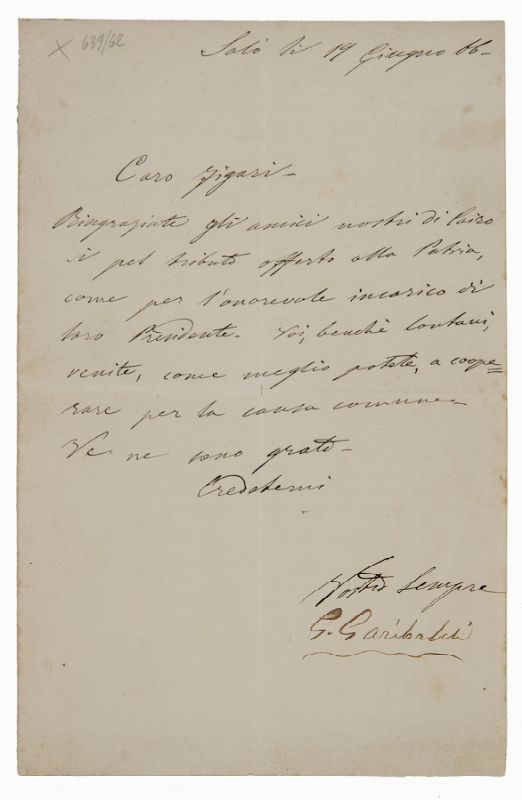 x 639/62
Salò li 19 Giugno 66-
Caro Figari-
Ringraziate gli amici nostri di Cairo
sì pel tributo offerto alla Patria,
come per l'onorevole incarico di
loro Presidente. Voi, benchè lontani,
venite, come meglio potete, a coope=
rare per la causa comune-
Ve ne sono grato-
Credetemi
Vostro Sempre
G. Garibaldi